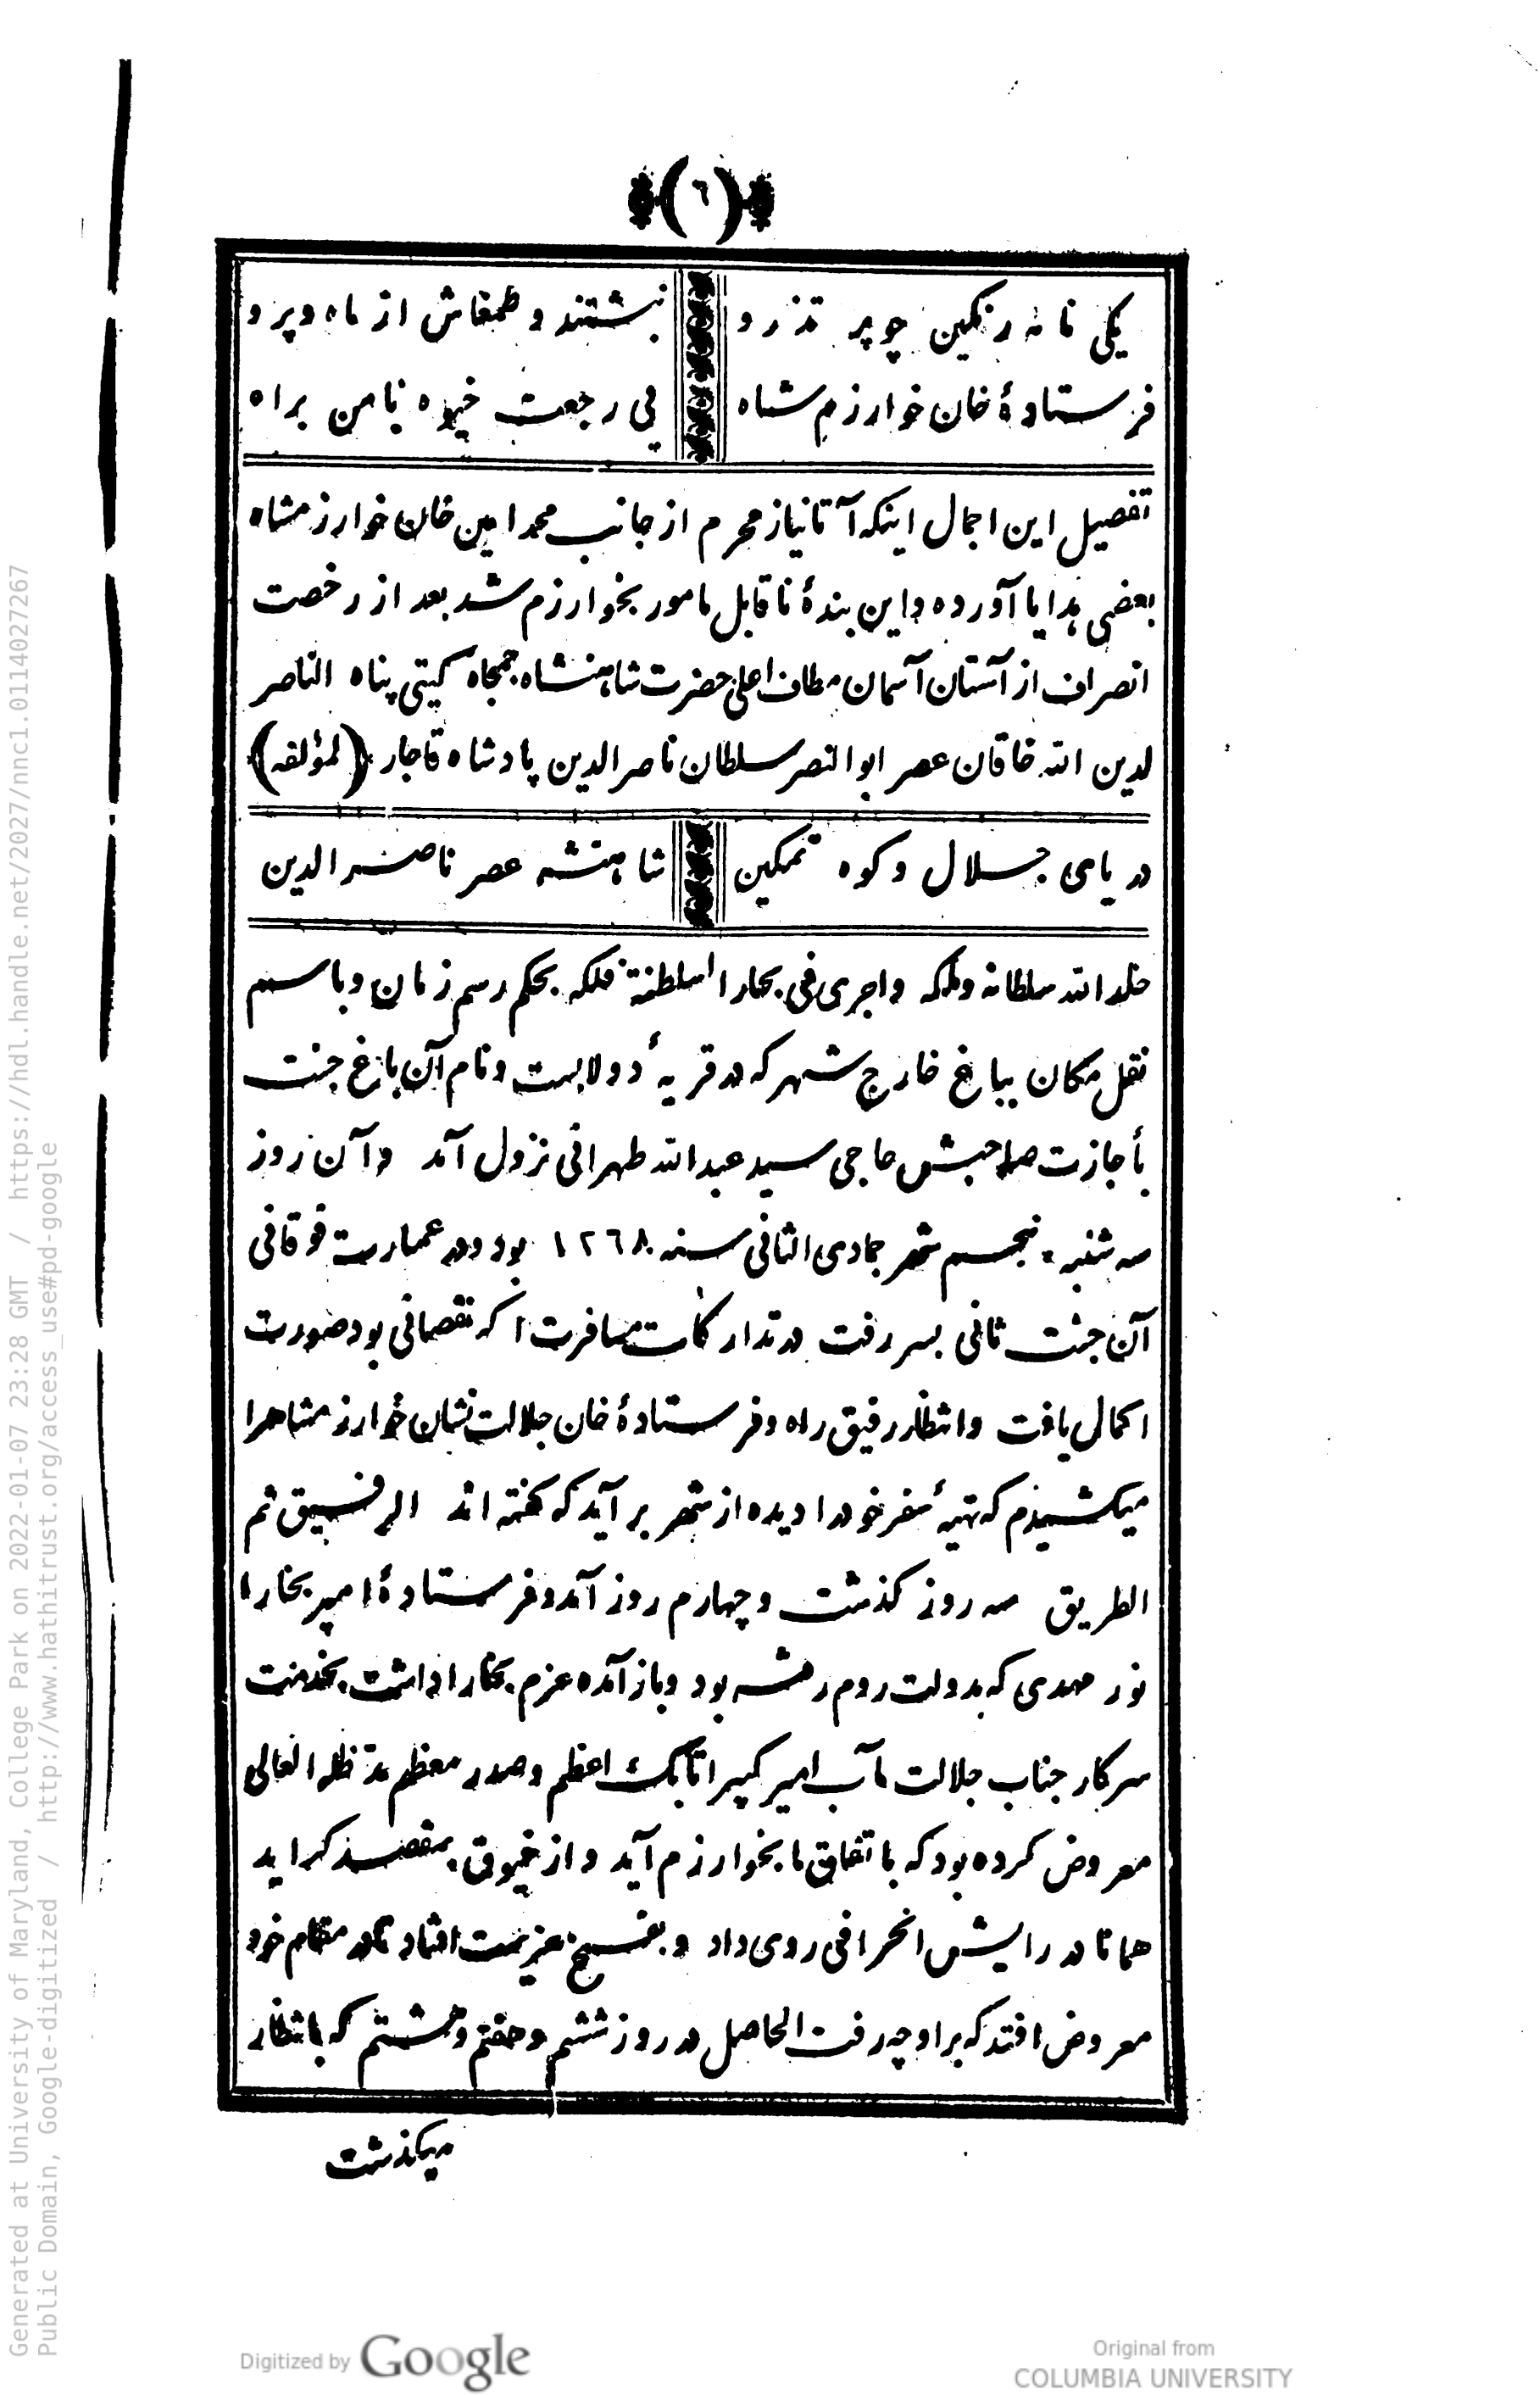 (٦)
یکی نامه رنکین چو پر تذرو نبشتند و طمغاش از ماه و پرو
فرستادهٔ خان خوارزم شاه پی رجعت خیوه با من براه
تفصیل این اجمال اینکه آتانیاز محرم از جانب محمد امین خان خوارزمشاه
بعضی هدایا آورده و این بندهٔ ناقابل مامور بخوارزم شد بعد از رخصت
انصراف از آستان آسمان مطاف اعلی حضرت شاهنشاه جمجاه کیتی پناه الناصر
لدین الله خاقان عصر ابوالنصر سلطان ناصرالدین پادشاه قاجار (لمؤلفه)
دریای جلال و کوه تمکین شاهنشه عصر ناصرالدین
خلد الله سلطانه وملکه واجری فی بحار السلطنة فلکه بحکم رسم زمان و باسم
نقل مکان بباغ خارج شهر که در قریهٔ دولابست و نام آن باغ جنت
بأجازت صاحبش حاجی سید عبدالله طهرانی نزول آمد و آن روز
سه شنبه پنجم شهر جمادی الثانی سنه ١٢٦٨ بود ودر عمارت فوقانی
آن جنت ثانی بسر رفت در تدارکات مسافرت اکر نقصانی بود صورت
اکمال یافت و انتظار رفیق راه و فرستادهٔ خان جلالت نشان خوارزمشاهرا
میکشیدم که تهیهٔ سفر خودرا دیده از شهر بر آید که کفته اند الرفیق ثم
الطریق سه روز کذشت و چهارم روز آمد و فرستادهٔ امیر بخارا
نور مهدی که بدولت روم رفته بود و باز آمده عزم بخارا داشت بخدمت
سرکار جناب جلالت مآب امیر کبیر اتابک اعظم و صدر معظم مد ظله العالی
معروض کرده بود که باتفاق ما بخوارزم آید و از خیوق بمقصد کراید
همانا در رایش انحرافی روی داد و بفسخ عزیمت افتاد تا در مقام خود
معروض افتد که بر او چه رفت الحاصل در روز ششم و هفتم و هشتم که بانتظار
میکذشت
Generated at University of Maryland, College Park on 2022-01-07 23:28 GMT / https://hdl.handle.net/2027/nnc1.0114027267
Public Domain, Google-digitized / http://www.hathitrust.org/access_use#pd-google
Digitized by Google
Original from
COLUMBIA UNIVERSITY